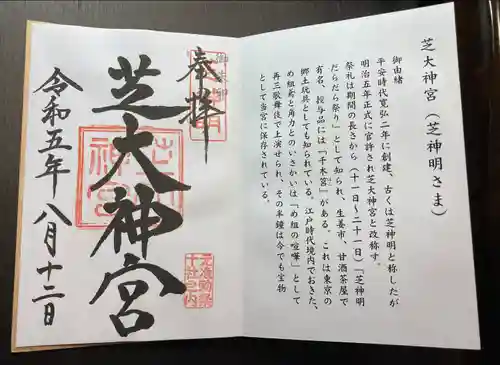 芝大神宮（芝神明さま）
御由緒
平安時代寛弘二年に創建、古くは芝神明と称したが
明治五年正式に官許され芝大神宮と改称す。
祭礼は期間の長さから（十一日～二十一日）「芝神明
だらだら祭り」として知られ、生姜市、甘酒茶屋で
有名。授与品には「千木筥」がある。これは東京の
郷土玩具としても知られている。江戸時代境内でおきた、
め組鳶と角力とのいさかいは「め組の喧嘩」として
再三歌舞伎で上演せられ、その半鐘は今でも宝物
として当宮に保存されている。
奉拝
芝大神宮
令和五年八月十二日
元准勅祭
十社之内